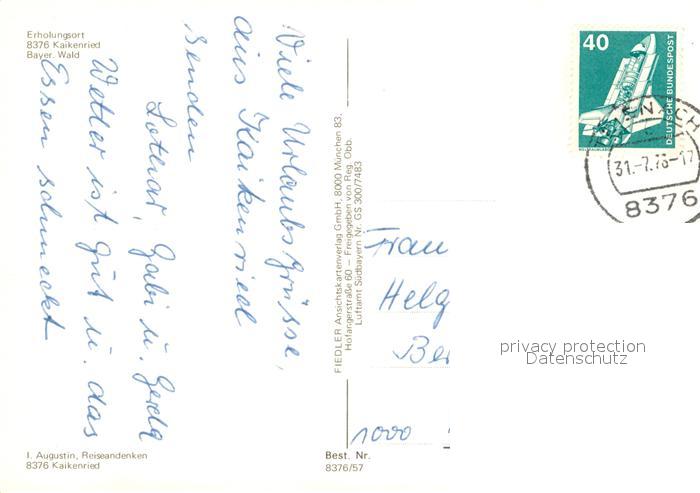 Erholungsort
8376 Kaikenried
Bayer. Wald
Viele Urlaubsgrüsse,
aus Kaikenried
senden
Lothar, Gabi u. Gerda
Wetter ist gut u. das
Essen schmeckt
I. Augustin, Reiseandenken
8376 Kaikenried
FIEDLER Ansichtskartenverlag GmbH, 8000 München 83,
Hofangerstraße 60 – Freigegeben von Reg. Obb.
Luftamt Südbayern Nr. GS 300/7483
Best. Nr.
8376/57
40
DEUTSCHE BUNDESPOST
31.-7.78-17
8376
Frau
Helg
Ber
1000
privacy protection
Datenschutz